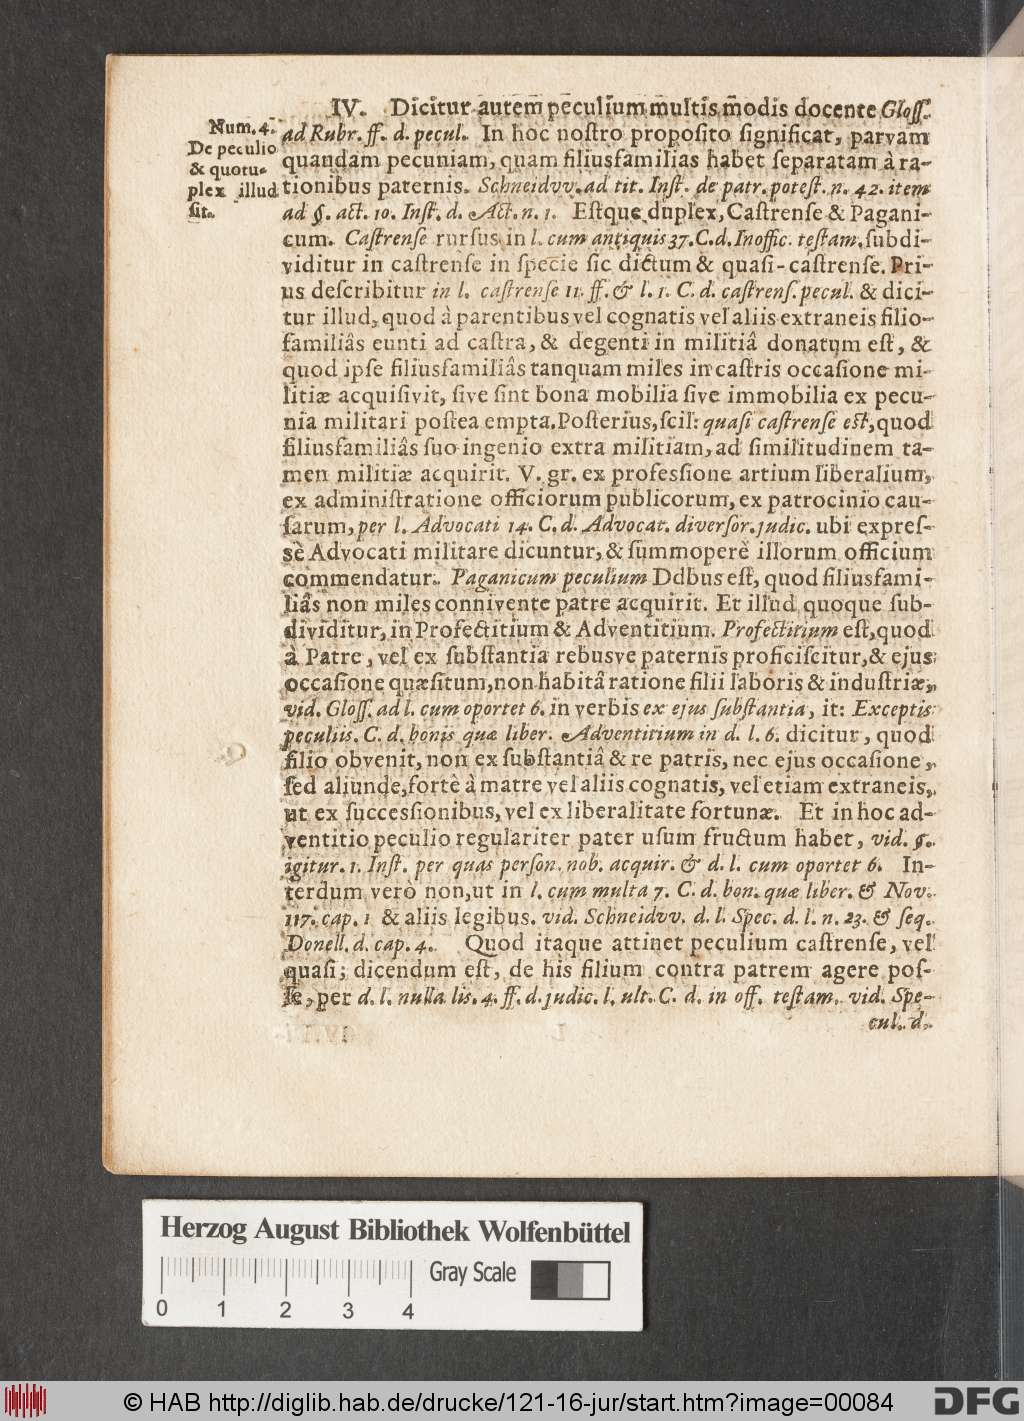 IV. Dicitur autem peculium multis modis docente Gloſſ.
Num. 4.
De peculio
& quotu-
plex illud
ſit.
ad Rubr. ff. d. pecul. In hoc noſtro propoſito ſignificat, parvam
quandam pecuniam, quam filiusfamilias habet ſeparatam à ra-
tionibus paternis. Schneidvv. ad tit. Inſt. de patr. poteſt. n. 42. item
ad §. act. 10. Inſt. d. Act. n. 1. Eſtque duplex, Caſtrenſe & Pagani-
cum. Caſtrenſe rurſus in l. cum antiquis 37. C. d. Inoffic. teſtam. ſubdi-
viditur in caſtrenſe in ſpecie ſic dictum & quaſi-caſtrenſe. Pri-
us deſcribitur in l. caſtrenſe 11. ff. & l. 1. C. d. caſtrenſ. pecul. & dici-
tur illud, quod à parentibus vel cognatis vel aliis extraneis filio-
familiâs eunti ad caſtra, & degenti in militiâ donatum eſt, &
quod ipſe filiusfamiliâs tanquam miles in caſtris occaſione mi-
litiæ acquiſivit, ſive ſint bona mobilia ſive immobilia ex pecu-
nia militari poſtea empta. Poſterius, ſcil: quaſi caſtrenſe eſt, quod
filiusfamiliâs ſuo ingenio extra militiam, ad ſimilitudinem ta-
men militiæ acquirit. V. gr. ex profeſsione artium liberalium,
ex adminiſtratione officiorum publicorum, ex patrocinio cau-
ſarum, per l. Advocati 14. C. d. Advocat. diverſor. judic. ubi expreſ-
sè Advocati militare dicuntur, & ſummoperè illorum officium
commendatur. Paganicum peculium Ddbus eſt, quod filiusfami-
liâs non miles connivente patre acquirit. Et illud quoque ſub-
dividitur, in Profectitium & Adventitium. Profectitium eſt, quod
à Patre, vel ex ſubſtantia rebusve paternis proficiſcitur, & ejus
occaſione quæſitum, non habitâ ratione filii laboris & induſtriæ,
vid. Gloſſ. ad l. cum oportet 6. in verbis ex ejus ſubſtantia, it: Exceptis
peculiis. C. d. bonis quæ liber. Adventitium in d. l. 6. dicitur, quod
filio obvenit, non ex ſubſtantiâ & re patris, nec ejus occaſione,
ſed aliunde, fortè à matre vel aliis cognatis, vel etiam extraneis,
ut ex ſucceſsionibus, vel ex liberalitate fortunæ. Et in hoc ad-
ventitio peculio regulariter pater uſum fructum habet, vid. §.
igitur. 1. Inſt. per quas perſon. nob. acquir. & d. l. cum oportet 6. In-
terdum verò non, ut in l. cum multa 7. C. d. bon. quæ liber. & Nov.
117. cap. 1 & aliis legibus. vid. Schneidvv. d. l. Spec. d. l. n. 23. & ſeq.
Donell. d. cap. 4. Quod itaque attinet peculium caſtrenſe, vel
quaſi; dicendum eſt, de his filium contra patrem agere poſ-
ſe, per d. l. nulla lis. 4. ff. d. judic. l. ult. C. d. in off. teſtam. vid. Spe-
cul. d.
Herzog August Bibliothek Wolfenbüttel
Gray Scale
0 1 2 3 4
© HAB http://diglib.hab.de/drucke/121-16-jur/start.htm?image=00084
DFG